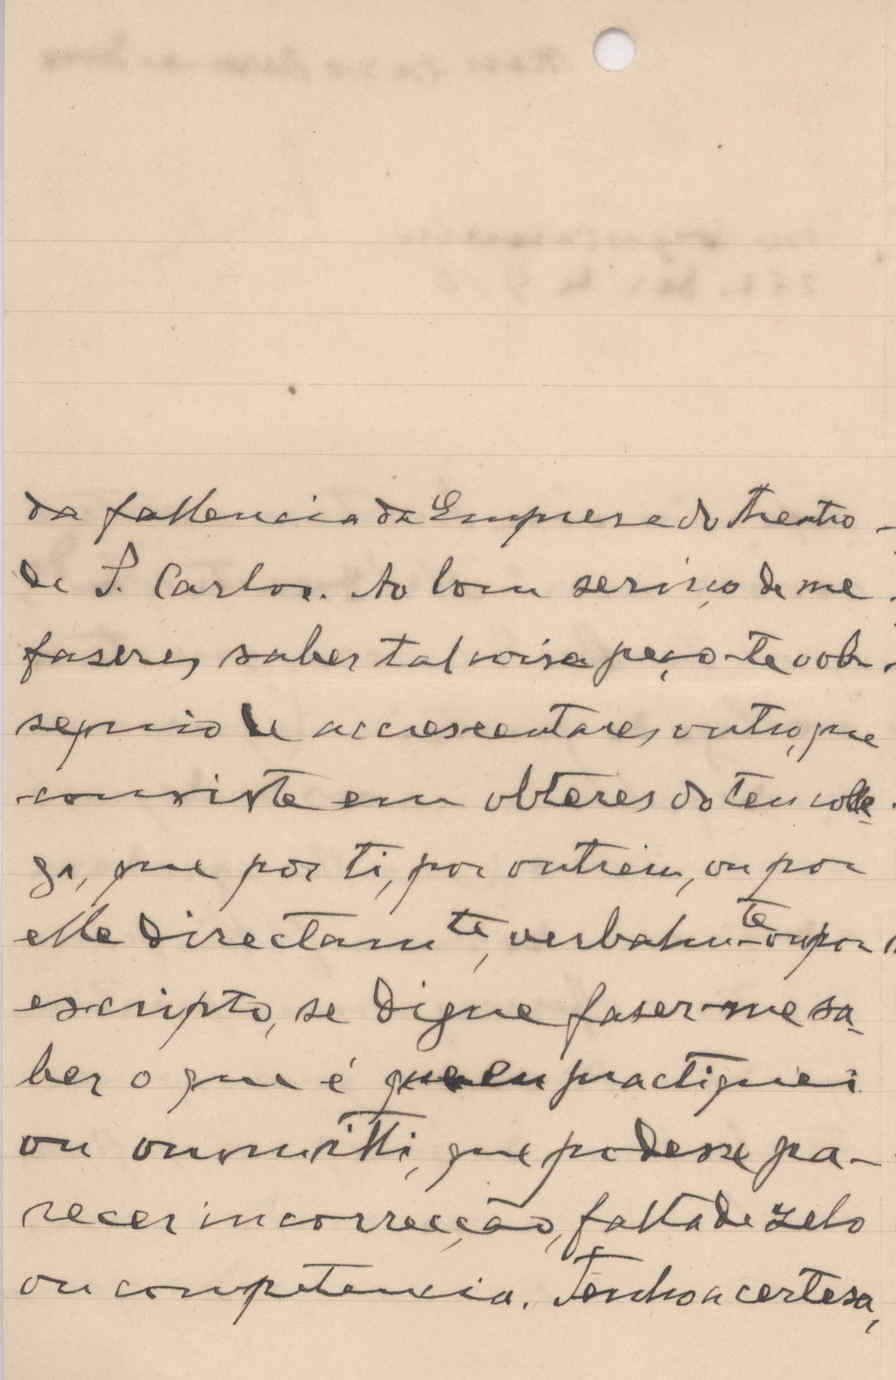 da fallencia da Empresa do theatro
de S. Carlos. Ao bom serviço de me
faseres saber tal coisa peço-te o ob-
sequio de accrescentares outro, que
consiste em obteres do teu colle-
ga, que por ti, por outrem, ou por
elle directamte, verbalmte ou por
escripto, se digne faser-me sa-
ber o que é que eu practiquei
ou ommitti, que podesse pa-
recer incorrecção, falta de zelo
ou competencia. Tenho a certesa,